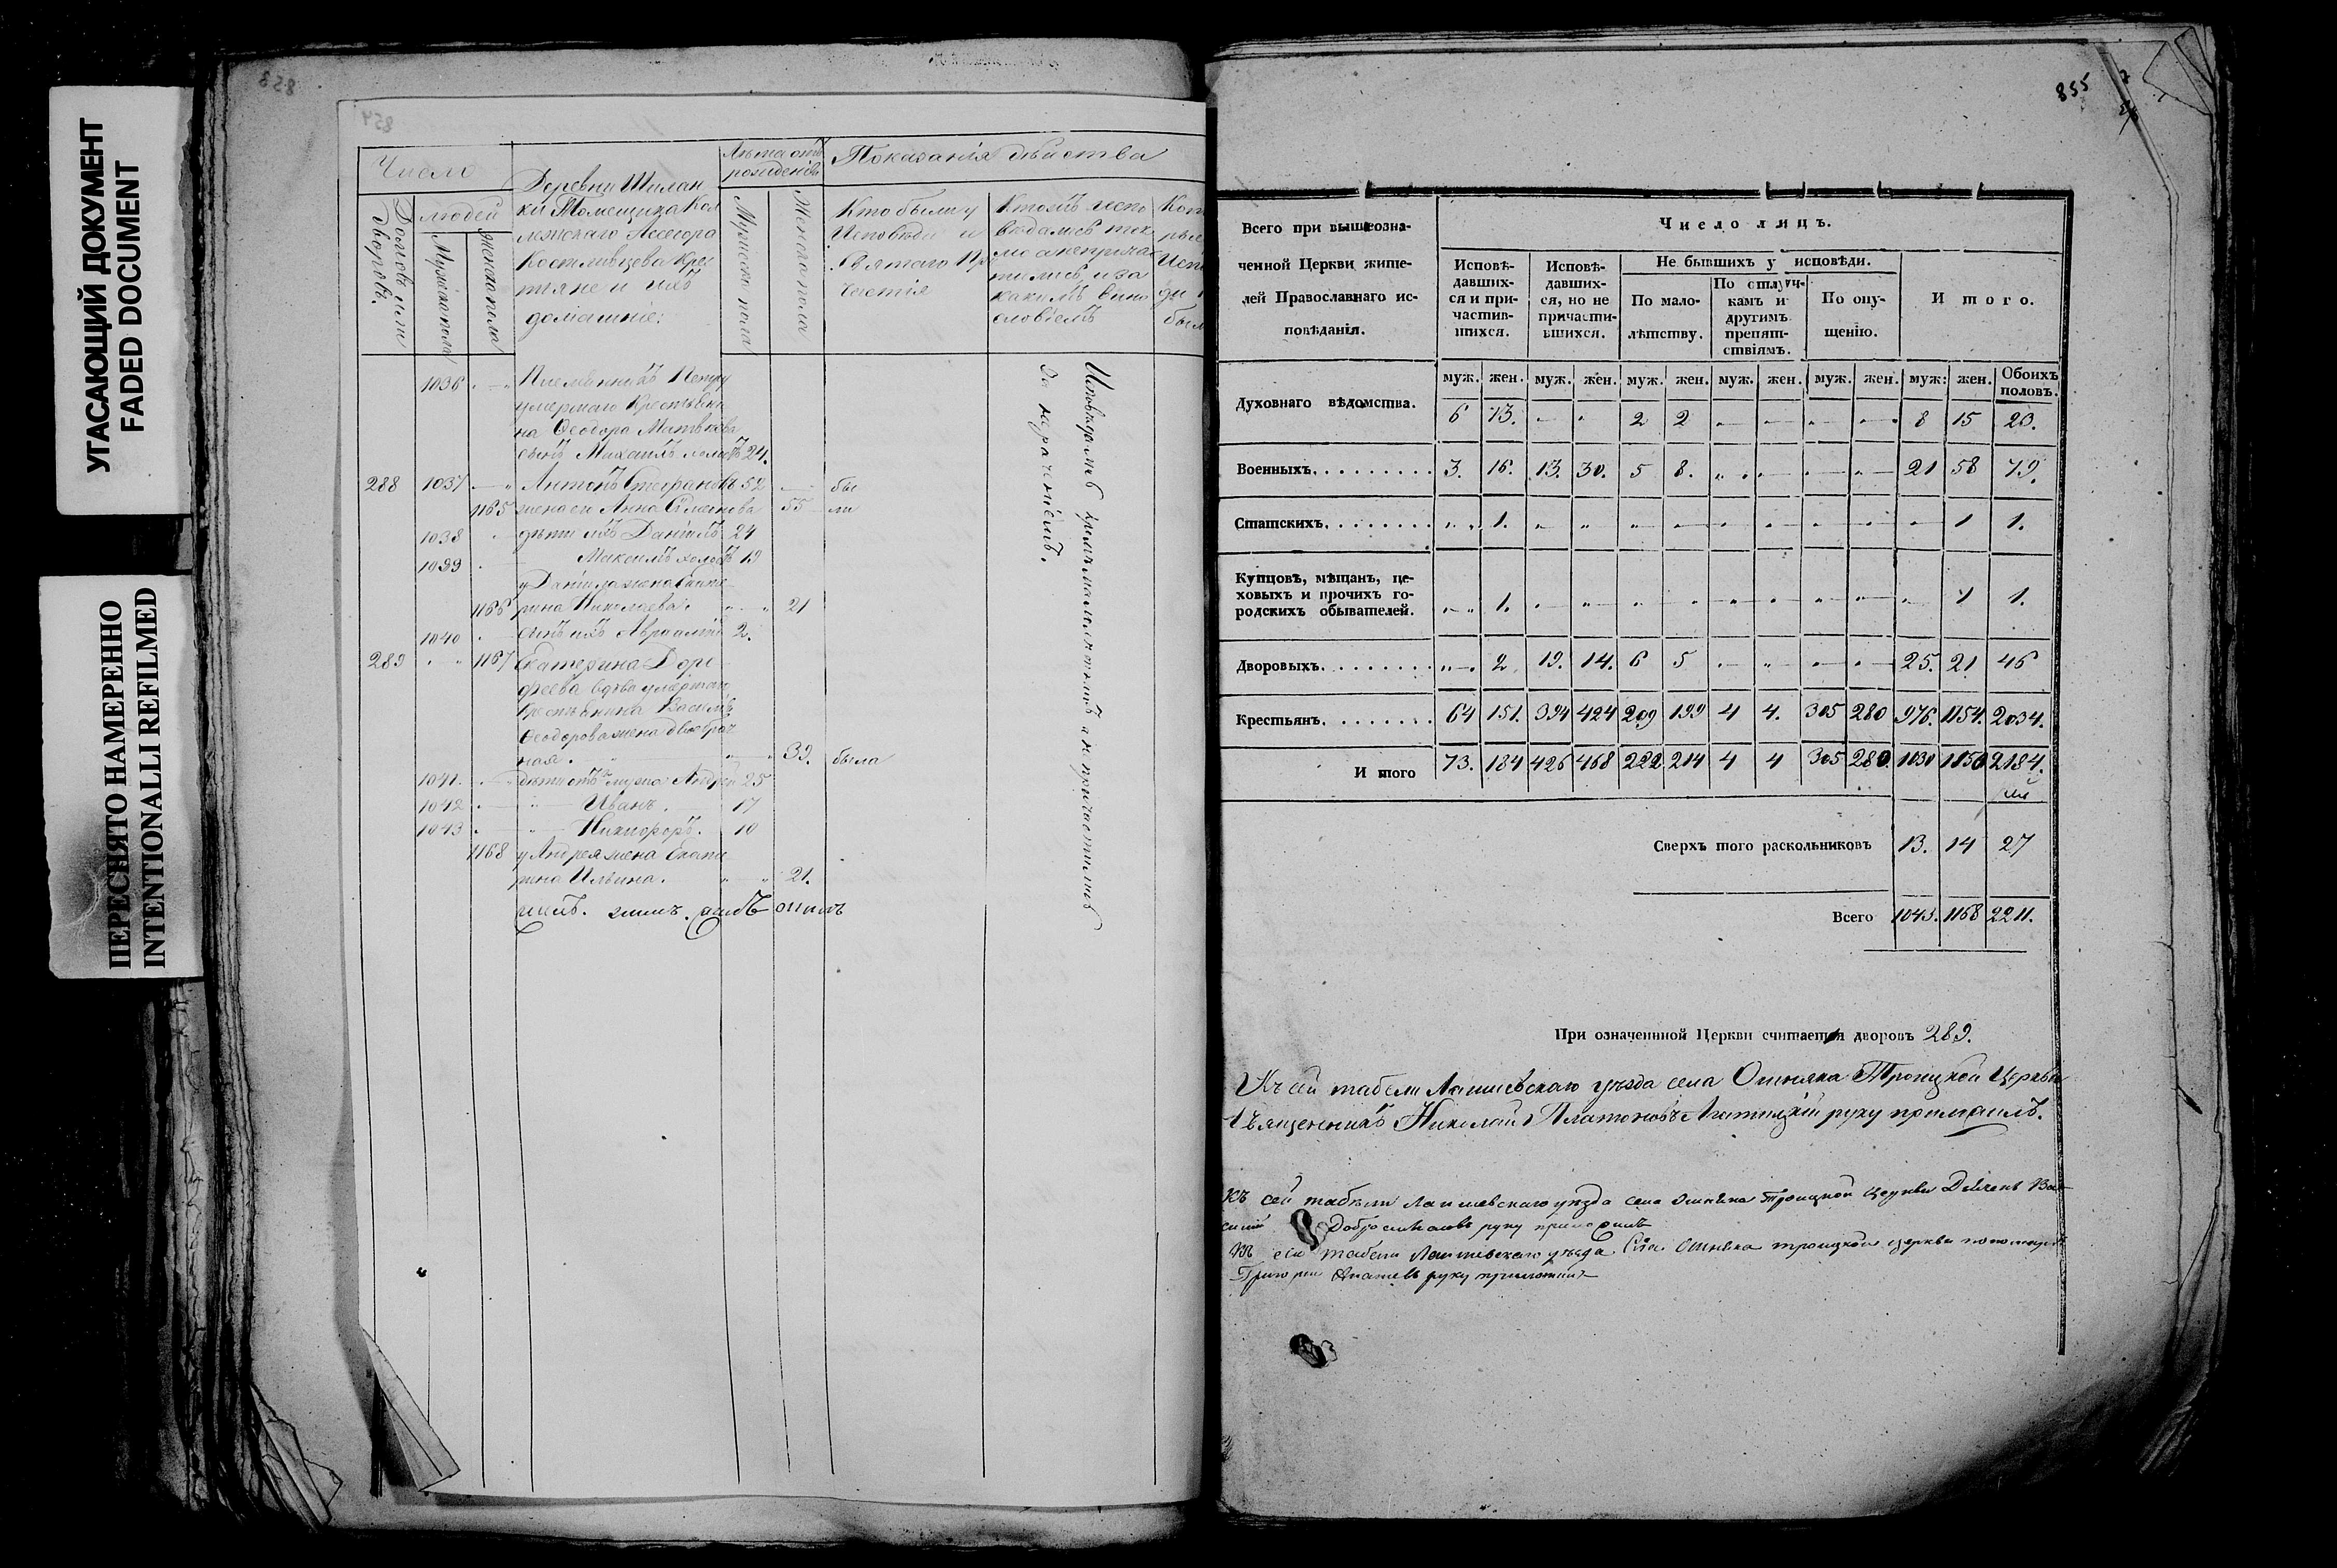 УГАСАЮЩИЙ ДОКУМЕНТ
FADED DOCUMENT
ПЕРЕСНЯТО НАМЕРЕННО
INTENTIONALLI REFILMED
Число
Деревни Шилан
ки Помещика Кол
лежскаго Ассесора
Костливцева Крес
тьяне и ихъ
домашніе:
Лѣта отъ
рожденія
Показанія дѣйства
Домовъ или
Дворовъ.
людей
Мужеска пола
Женска пола
Мужеска пола
Женска пола
Кто были у
Исповѣди и
Святаго При
частія
Кто исповѣ
дались ток
мо а непричас
тились, и за
какимъ вино
словіемъ
1036 Племянникъ Петру
умершаго Крестьяни
на Ѳеодора Матвѣева
сынъ Михаилъ холостъ 24.
288 1037 Антонъ Стефановъ 52 бы
1165 жена ево Анна Симеонова 55 ли
1038 дѣти ихъ Даніилъ 24
1039 Максимъ холостъ 19
у Даніила жена Екате
1166 рина Николаева. 21
1040 сынъ ихъ Авраамій 2.
289 1167 Екатерина Доро
феева вдова умершаго
Крестьянина Василья
Ѳеодорова жена двоебрач
ная. 39. была
1041. дѣти отъ 1го мужа Андрей 25
1042 Иванъ. 17
1043 Никифоръ. 10
1168 у Андрея жена Екате
рина Ильина. 21.
Исповѣдались а не причастились
за нераченіемъ.
855
Всего при вышеозна-
ченной Церкви жите-
лей Православнаго ис-
повѣданія.
Число лицъ.
Исповѣ-
давших-
ся и при-
частив-
шихся.
Исповѣ-
давших-
ся, но не
причасти-
вшихся.
Не бывшихъ у исповѣди.
По мало-
лѣтству.
По отлуч-
камъ и
другимъ
препят-
ствіямъ.
По опу-
щенію.
И того.
муж. жен. муж. жен. муж. жен. муж. жен. муж. жен. муж: жен. Обоихъ
половъ.
Духовнаго вѣдомства. 6 13. 2 2 8 15 23.
Военныхъ. 3. 16. 13. 30. 5 8. 21 58 79.
Статскихъ. 1. 1 1.
Купцовъ, мѣщанъ, це-
ховыхъ и прочихъ го-
родскихъ обывателей. 1. 1 1.
Дворовыхъ. 2 19. 14. 6 5 25. 21. 46
Крестьянъ. 64 151. 394 424 209 199 4 4. 305 280 976. 1154. 2034.
И того 73. 184 426 468 222 214 4 4 305 280. 1030 1150 2184.
Сверхъ того раскольниковъ 13. 14 27
Всего 1043. 1168 2211.
При означенной Церкви считается дворовъ 289.
Къ сей табели Лаишевскаго уѣзда села Ошняка Троицкой Церкви
Священникъ Николай Платоновъ руку приложилъ.
Къ сей табели Лаишевскаго уѣзда села Ошняка Троицкой Церкви Діяконъ Ва
силій Добросмысловъ руку приложилъ
Къ сей табели Лаишевскаго уѣзда Села Ошняка троицкой церкви пономарь
Григорій руку приложилъ